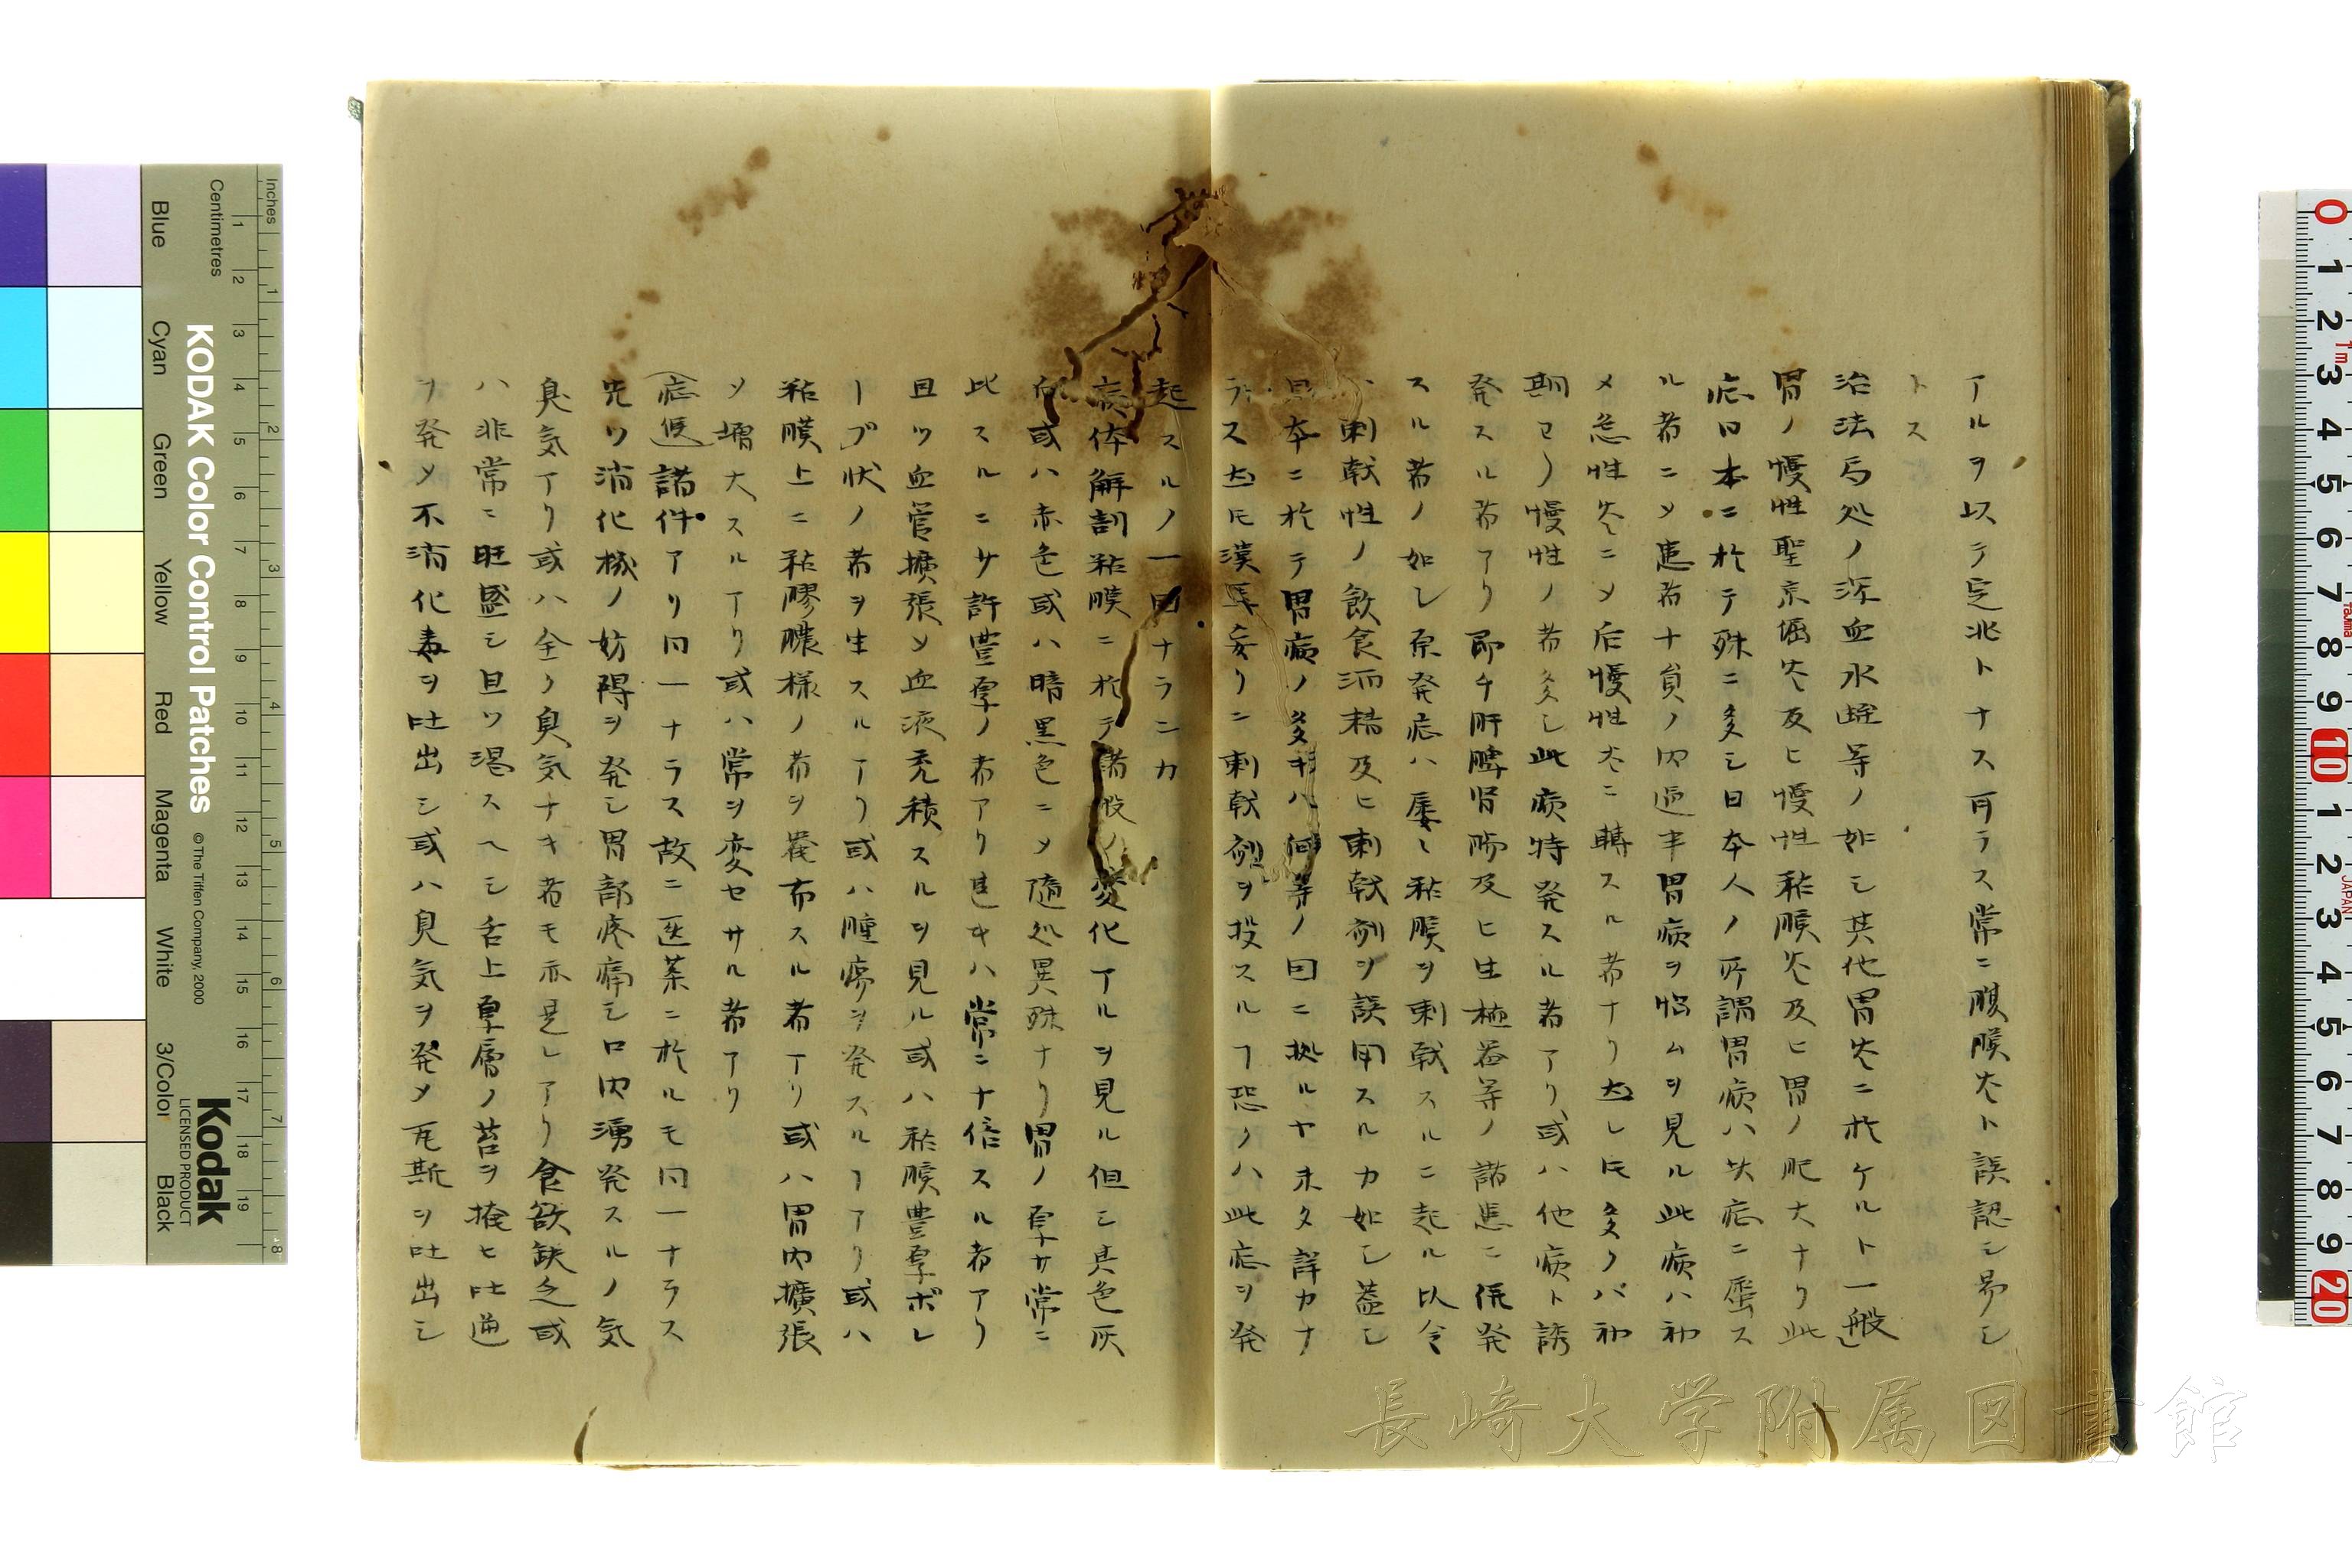 アルヲ以テ定兆トナス可ラス常ニ腹膜炎ト誤認シ易シ
トス
治法局処ノ瀉血水蛭等ノ如シ其他胃炎ニ於ケルト一般
胃ノ慢性聖京偪炎及ヒ慢性粘膜炎及ヒ胃ノ肥大ナリ此
症日本ニ於テ殊ニ多シ日本人ノ所謂胃病ハ此症ニ属ス
ル者ニメ患者十員ノ内過半胃病ヲ悩ムヲ見ル此病ハ初
メ急性炎ニメ后慢性炎ニ轉スル者ナリ然レ𪜈多クハ初
期ヨリ慢性ノ者多シ此病特発スル者アリ或ハ他病ト誘
発スル者アリ即チ肝脾腎腸及ヒ生殖器等ノ諸患ニ併発
スル者ノ如シ原発症ハ屡々粘膜ヲ刺戟スルニ起ル以令
ハ刺戟性ノ飲食酒精及ヒ刺戟剤ヲ誤用スルカ如シ蓋シ
日本ニ於テ胃病ノ多キハ何等ノ因ニ拠ルヤ未タ詳カナ
ラス然𪜈漢医妄リニ刺戟剤ヲ投スルヿ恐クハ此症ヲ発
起スルノ一因ナランカ
病体解剖粘膜ニ於テ諸般ノ変化アルヲ見ル但シ其色灰
色或ハ赤色或ハ暗黒色ニメ随処異殊ナリ胃ノ厚サ常ニ
比スルニサ許豊厚ノ者アリ甚キハ常ニナ倍スル者アリ
且ツ血管擴張メ血液充積スルヲ見ル或ハ粘膜豊厚ポレ
ープ状ノ者ヲ生スルアリ或ハ腫瘍ヲ発スルヿアリ或ハ
粘膜上ニ粘膠膿様ノ者ヲ蔓布スル者アリ或ハ胃内擴張
ソ増大スルアリ或ハ常ヲ変セサル者アリ
症候諸件アリ同一ナラス故ニ医薬ニ於ルモ同一ナラス
先ツ消化機ノ妨碍ヲ発シ胃部疼痛シ口内湧発スルノ気
臭気アリ或ハ全ク臭気ナキ者モ亦是レアリ食欲缺乏或
ハ非常ニ旺盛シ且ツ渇スヘシ舌上厚層ノ苔ヲ掩ヒ吐逆
ヲ発メ不消化素ヲ吐出シ或ハ臭気ヲ発メ瓦斯ヲ吐出シ
長崎大学附属図書館
KODAK Color Control Patches
© The Tiffen Company, 2000
Kodak
LICENSED PRODUCT
Inches
Centimetres
Blue
Cyan
Green
Yellow
Red
Magenta
White
3/Color
Black
1 2 3 4 5 6 7 8 9 10 11 12 13 14 15 16 17 18 19
1 2 3 4 5 6 7 8
0 1 2 3 4 5 6 7 8 9 10 1 2 3 4 5 6 7 8 9 20
JAPAN